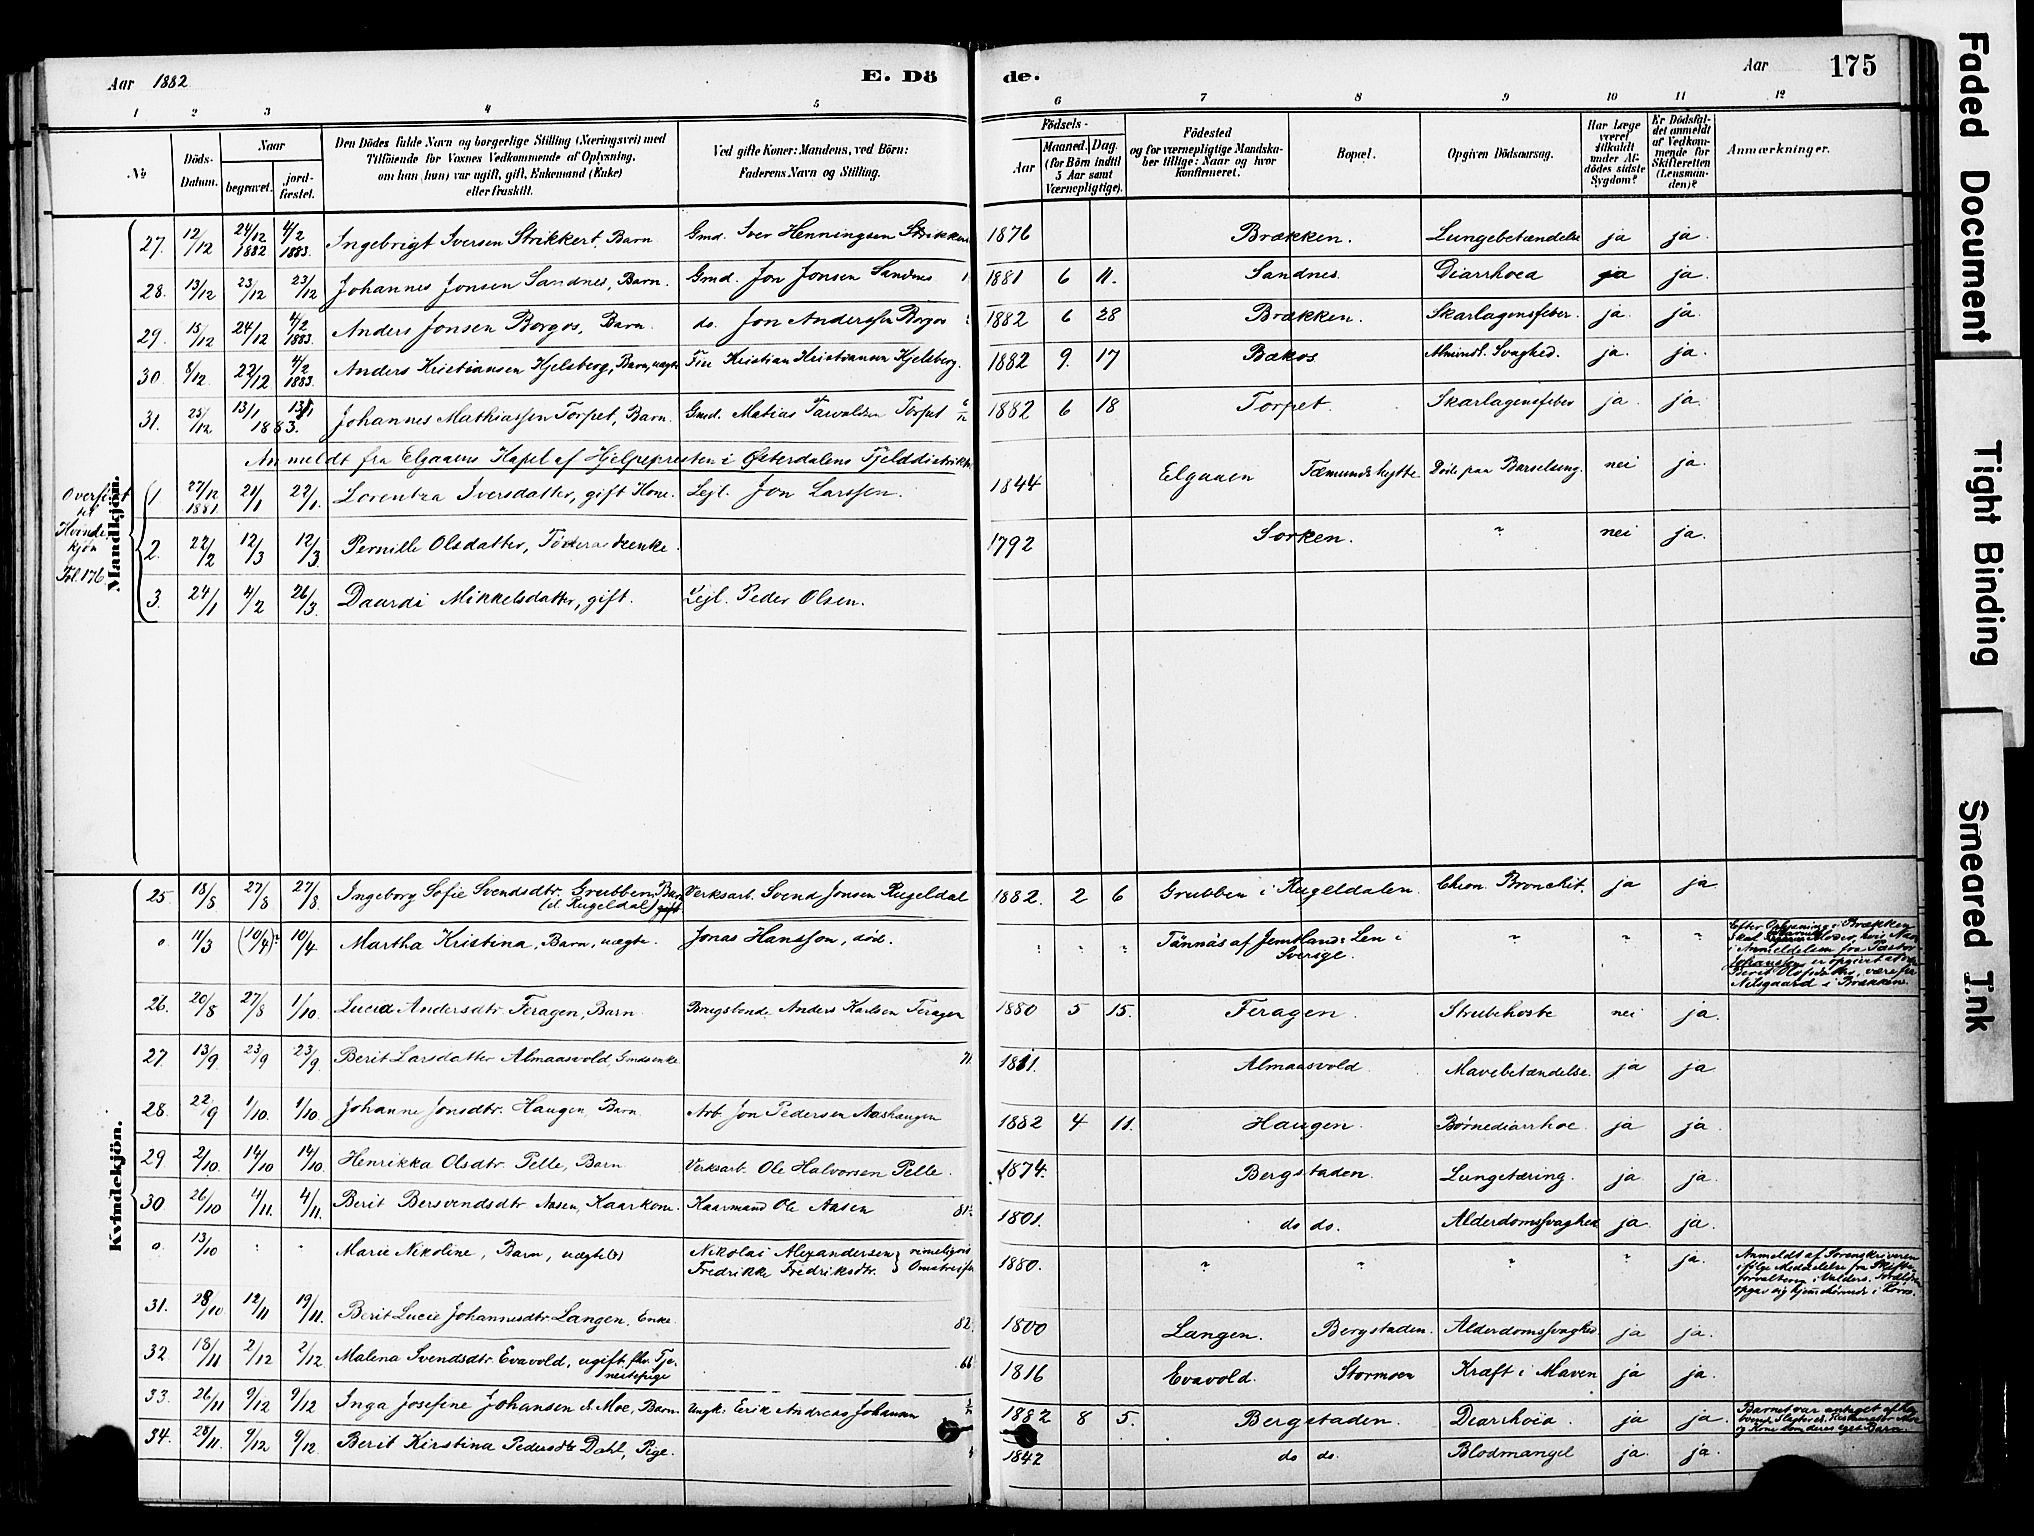 Aar 1882
E. Dö
de.
Aar
175
1 2 3 4 5 6 7 8 9 10 11 12
No
Döds-Datum.
Naar
begravet.
jord-fæstet.
Den Dödes fulde Navn og borgerlige Stilling (Næringsvei) med
Tilföiende for Voxnes Vedkommende af Oplysning,
om han (hun) var ugift, gift, Enkemand (Enke)
eller fraskilt.
Ved gifte Koner: Mandens, ved Börn:
Faderens Navn og Stilling.
Födsels-
Aar
Maaned. Dag.
(for Börn indtil
5 Aar samt
Værnepligtige).
Födested
og for værnepligtige Mandska-
ber tillige: Naar og hvor
konfirmeret.
Bopæl.
Opgiven Dödsaarsag.
Har Læge
været
tilkaldt
under Af-
dödes sidste
Sygdom?
Er Dödsfal-
det anmeldt
af Vedkom-
mende for
Skifteretten
(Lensman-
den)?
Anmærkninger.
Mandkjön.
27. 12/12 24/12 1882 4/2 1883. Ingebrigt Iversen Strikkert, Barn Gmd. Iver Henningsen Strikkert 1876 Brækken. Lungebetændelse ja ja.
28. 13/12 23/12 23/12 Johannes Jonsen Sandnes, Barn. Gmd. Jon Jonsen Sandnes 1881 6 11. Sandnes. Diarrhoea ja ja.
29. 15/12 24/12 4/2 1883 Anders Jonsen Borgos, Barn. do. Jon Anderssen Borgos 1882 6 28 Brækken. Skarlagensfeber. ja. ja.
30. 8/12. 22/12 4/2 1883. Anders Kristiansen Hjelsberg, Barn, uægte Kristian Kristiansen Hjelsberg. 1882 9. 17 Bækos Almindl. Svaghed. ja. ja.
31. 25/12 13/1 1883. 13/1 Johannes Mathiassen Torpet, Barn. Gmd. Matias Torpet 1882 6 18 Torpet. Skarlagensfeber ja. ja.
Anmeldt fra Elgaaens Kapel af Hjelpepresten i Østerdalens Fjelddistrikt
Overført
til
Kvinde
kjøn
Fol. 176.
1 27/12 1881 21/1 22/1. Lorentza Iversdatter, gift Kone. Lejl. Jon Larssen. 1844 Elgaaen Fæmundshytte Døde paa Barselseng. nei ja.
2. 22/2 12/3 12/3. Pernille Olsdatter, Føderaadsenke. 1792 Sorken. " nei ja.
3. 24/1 4/2 26/3. Daardi Mikkelsdatter, gift. Lejl. Peder Olsen.
Kvindekjön.
25. 18/8 27/8 27/8. Ingeborg Sofie Svendsdtr. Grubben, Barn Verksarb. Svend Jonsen Rugeldal 1882. 2 6 Grubben i Rugeldalen. Chron. Bronchit. ja ja.
(el. Rugeldal) gift
o. 11/3 (10/4)? 10/4 Martha Kristina, Barn, uægte. Jonas Hansson, død. " " " Tännäs af Jemtlands Len i Sverige. " " "
Efter Oplysning i Brækken
skal Moder, hvis Navn
i Anmeldelsen fra Pastor
er opgivet at være
Berit Olofsdatter, være fra
Nilsgaard i Brækken.
26. 20/8 27/8 1/10. Lucia Andersdtr Feragen, Barn. Brugsbende. Anders Karlsen Feragen 1880 5 15. Feragen. Strubehoste nei ja.
27. 13/9 23/9 23/9 Berit Larsdatter Almaasvold, Gmdsenke 71 1811. Almaasvold. Mavebetændelse. ja ja
28. 22/9 1/10. 1/10. Johanne Jonsdtr. Haugen, Barn. Arb. Jon Pedersen Aashaugen 1882 4 11. Haugen. Børnediarrhoe. ja ja.
29. 2/10. 14/10 14/10. Henrikka Olsdtr. Pelle, Barn. Verksarb. Ole Halvorsen Pelle. 1874. Bergstaden. Lungetæring. ja ja.
30. 26/10 4/11. 4/11. Berit Bersvendsdtr Aasen, Kaarkone. Kaarmand Ole Aasen 81 1801. do do. Alderdomssvaghed ja ja.
o. 13/10 " " Marie Nikoline, Barn, uægte(?) Nikolai Alexandersen } rimeligvis 1880. " " " " ja.
Fredrikke Fredriksdtr. } Omstreifere
Anmeldt af Sorenskriveren
i følge Meddelelse fra Skifte-
forvalteren i Valders. Forældrene
opgav sig hjemhørende i Røros.
31. 28/10 12/11 19/11. Berit Lucie Johannesdtr. Langen, Enke. 82. 1800 Langen. Bergstaden. Alderdomssvaghed. ja ja.
32. 18/11 2/12 2/12 Malena Svendsdtr. Evavold, ugift, fhv. Tje-
nestepige 66 1816 Evavold. Stormoen Kræft i Maven ja ja.
33. 26/11 9/12 9/12 Inga Josefine Johansen el. Moe, Barn. Ungk. Erik Andreas Johansen 1882 8 5. Bergstaden. Diarrhoia. ja ja.
Barnet var antaget af
og Kone som deres eget Barn.
34. 28/11. 9/12 9/12. Berit Kirstina Pedersdtr Dahl, Pige. 1842 do do. Blodmangel ja ja.
Faded Document
Tight Binding
Smeared Ink